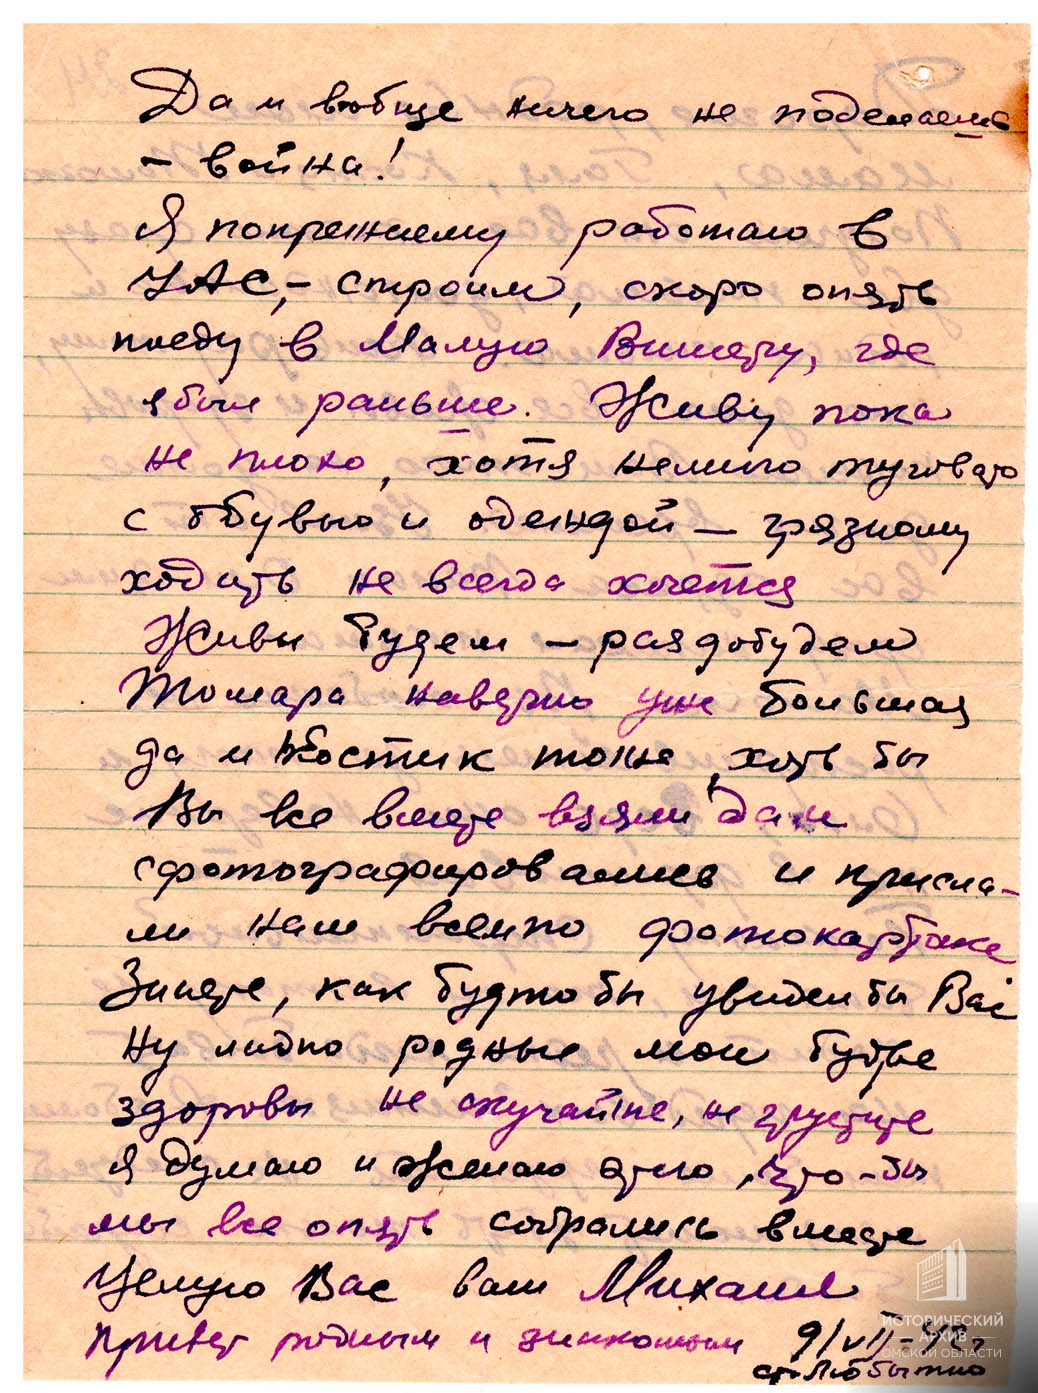 Да и вообще ничего не поделаешь
– война!
Я попрежнему работаю в
УАС, – строим, скоро опять
поеду в Малую Вишеру, где
я был раньше. Живу пока
не плохо, хотя немного туговато
с обувью и одеждой – грязному
ходить не всегда хочется
Живы будем – раздобудем
Томара наверно уж большая
да и Костик тоже, хоть бы
Вы все вместе взяли да и
сфотографировались и присла-
ли нам всем по фотокарточке
Знаете, как будто бы увидел бы Вас
Ну ладно родные мои будьте
здоровы не скучайте, не грустите
Я думаю и желаю этого, что-бы
мы все опять собрались вместе
Целую Вас ваш Михаил
Привет родным и знакомым 9/VII-43г
ст. Любытно
ИСТОРИЧЕСКИЙ
АРХИВ
ОМСКОЙ ОБЛАСТИ